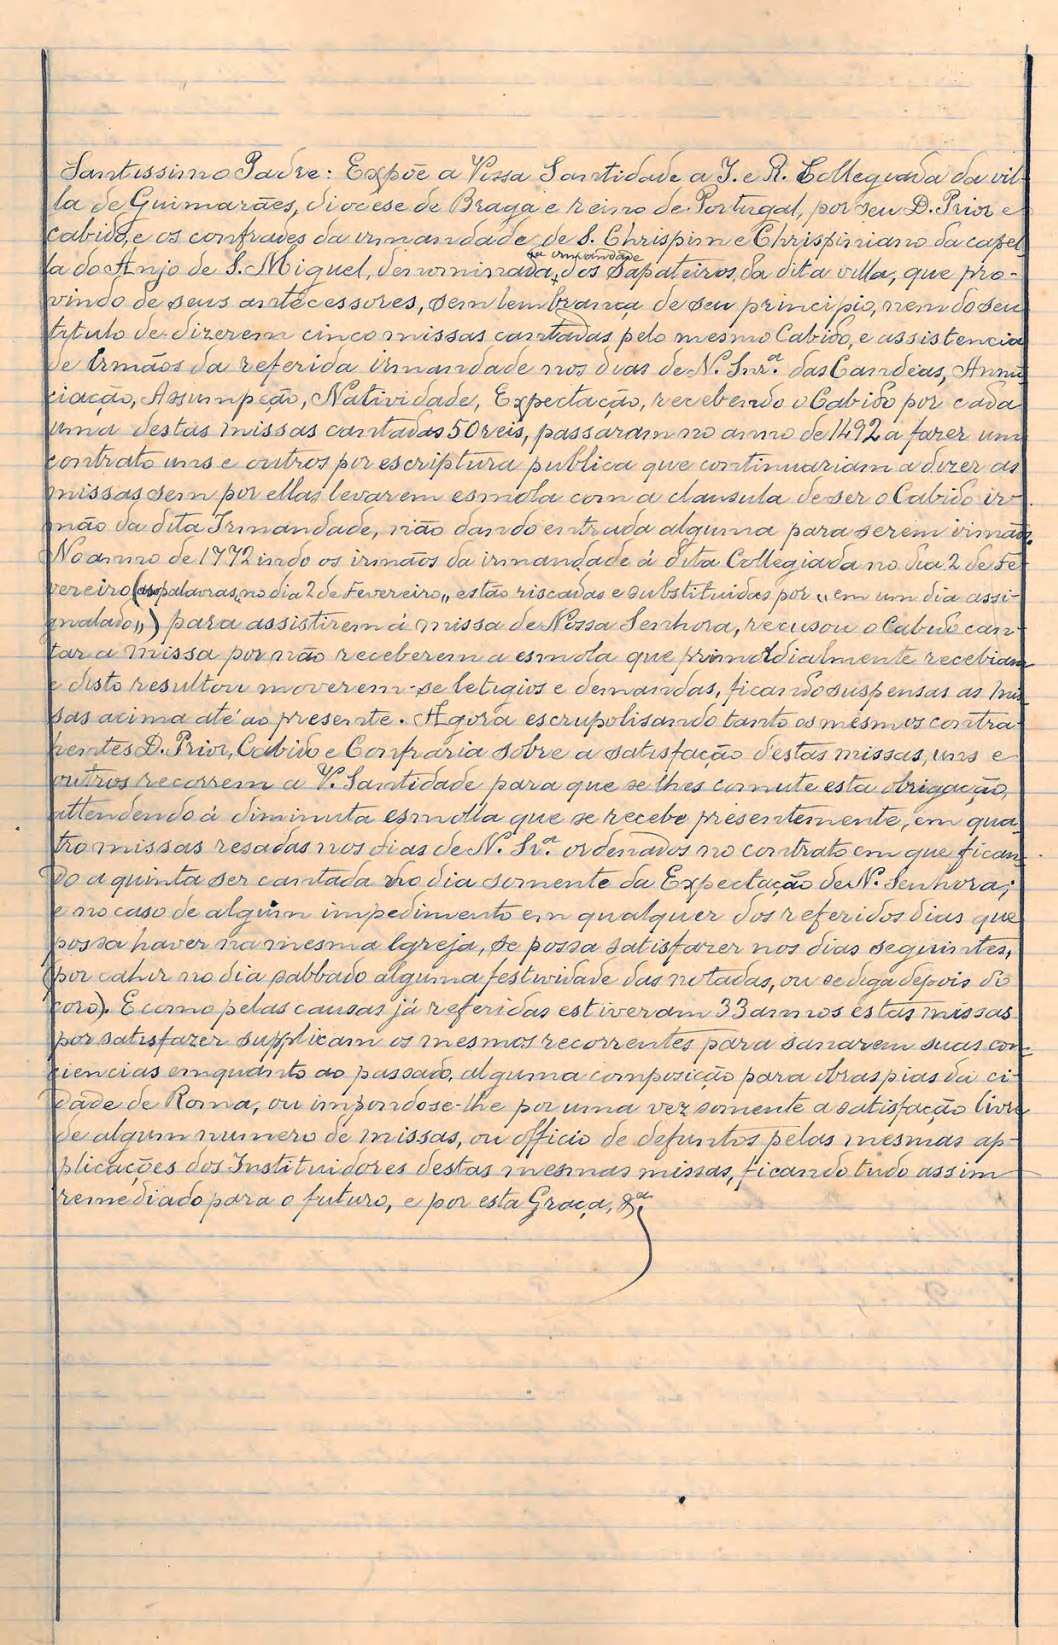 Santissimo Padre: Expõe a Vossa Santidade a I. e R. Collegiada da vil-
la de Guimarães, diocese de Braga e reino de Portugal, por seu D. Prior e
cabido, e os confrades da irmandade de S. Chrispim e Chrispiniano da capel-
la do Anjo de S. Miguel, denominada, da irmandade dos Sapateiros, da dita villa, que pro-
vindo de seus antecessores, sem lembrança de seu principio, nem do seu
titulo de dizerem cinco missas cantadas pelo mesmo Cabido, e assistencia
de Irmãos da referida irmandade nos dias de N. Snr.ª das Candeas, Annu
ciação, Assumpção, Natividade, Expectação, recebendo o Cabido por cada
uma destas missas cantadas 50 reis, passaram no anno de 1492 a fazer um
contrato uns e outros por escriptura publica que continuariam a dizer as
missas sem por ellas levarem esmola com a clausula de ser o Cabido ir-
mão da dita Irmandade, não dando entrada alguma para serem irmãos.
No anno de 1772 indo os irmãos da irmandade á dita Collegiada no dia 2 de Fe-
vereiro (as palavras "no dia 2 de Fevereiro" estão riscadas e substituidas por "em um dia assi-
gnalado") para assistirem á missa de Nossa Senhora, recusou o Cabido can-
tar a missa por não receberem a esmola que primordialmente recebiam
e disto resultou moverem-se letigios e demandas, ficando suspensas as mis-
sas acima até ao presente. Agora escrupolisando tanto os mesmos contra-
hentes D. Prior, Cabido e Confraria sobre a satisfação destas missas, uns e
outros recorrem a V. Santidade para que se lhes comute esta obrigação,
attendendo á diminuta esmolla que se recebe presentemente, em qua-
tro missas resadas nos dias de N. Sr.ª ordenados no contrato em que fican-
do a quinta ser cantada no dia somente da Expectação de N. Senhora;
e no caso de algum impedimento em qualquer dos referidos dias que
possa haver na mesma Igreja, se possa satisfazer nos dias seguintes,
(por cahir no dia sabbado alguma festividade das notadas, ou se diga depois do
coro). E como pelas causas já referidas estiveram 33 annos estas missas
por satisfazer supplicam os mesmos recorrentes para sanarem suas con-
ciencias emquanto ao passado, alguma composição para obras pias da ci-
dade de Roma, ou impondose-lhe por uma vez somente a satisfação livre
de algum numero de missas, ou officio de defuntos pelas mesmas ap-
plicações dos Instituidores destas mesmas missas, ficando tudo assim
remediado para o futuro, e por esta Graça, &ª